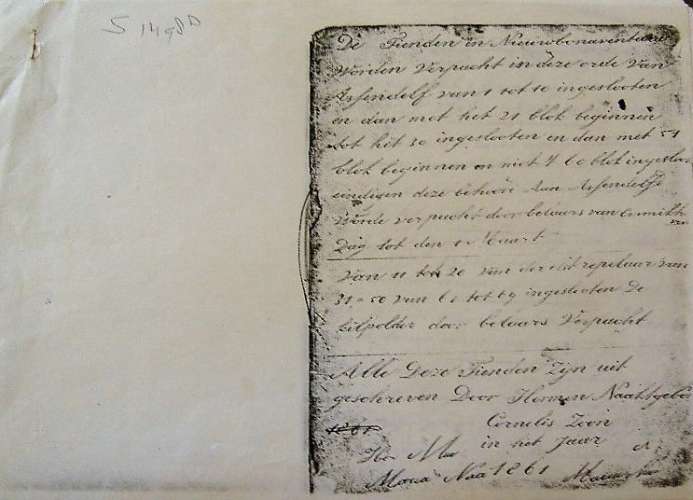 S 1498D
De Tienden in Nieuwbonaventura
Worden Verpacht in deze orde Van
Assendelf van 1 tot 10 ingeslooten
en dan met het 21 blok beginnen
tot het 30 ingeslooten en dan met 51
blok beginnen en met 't 60 blok ingesloo
eindigen deze behoren Aan Assendelft
Worde verpacht door betaars van
Dag tot den 1 Maart
Van 11 tot 20 van der est repelaar van
31 = 50 van 61 tot 69 ingeslooten De
kilpolder door betaars Verpacht
Alle Deze Tienden Zijn uit
geschreven Door Hermen Naaktgebo
Cornelis Zoon
in het Jaar
1861